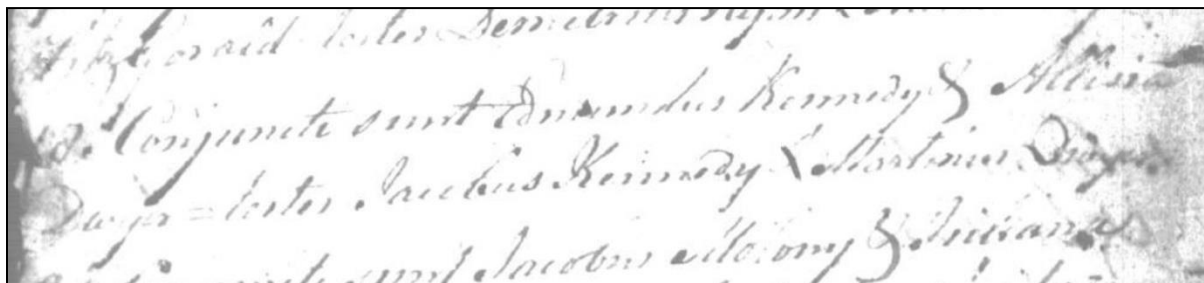 Fitzgerald testes Demetrius Ryan
18. Conjuncti sunt Edmundus Kennedy & Allisia
Dwyer = testes Jacobus Kennedy & Martinus Dwyer
sunt Jacobus Molony & Juliana